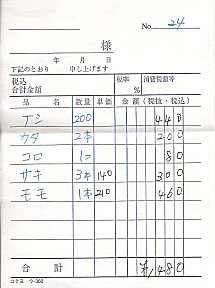 No. 24
様
年 月 日
下記のとおり 申し上げます
税込合計金額 税率 % 消費税額等
品名 数量 単価 金額(税抜・税込)
アシ 200 440
カタ 2本 200
コロ 1コ 80
サキ 3本 140 300
モモ 1本 210 460
合計 ¥1,480
コクヨ ウ-360